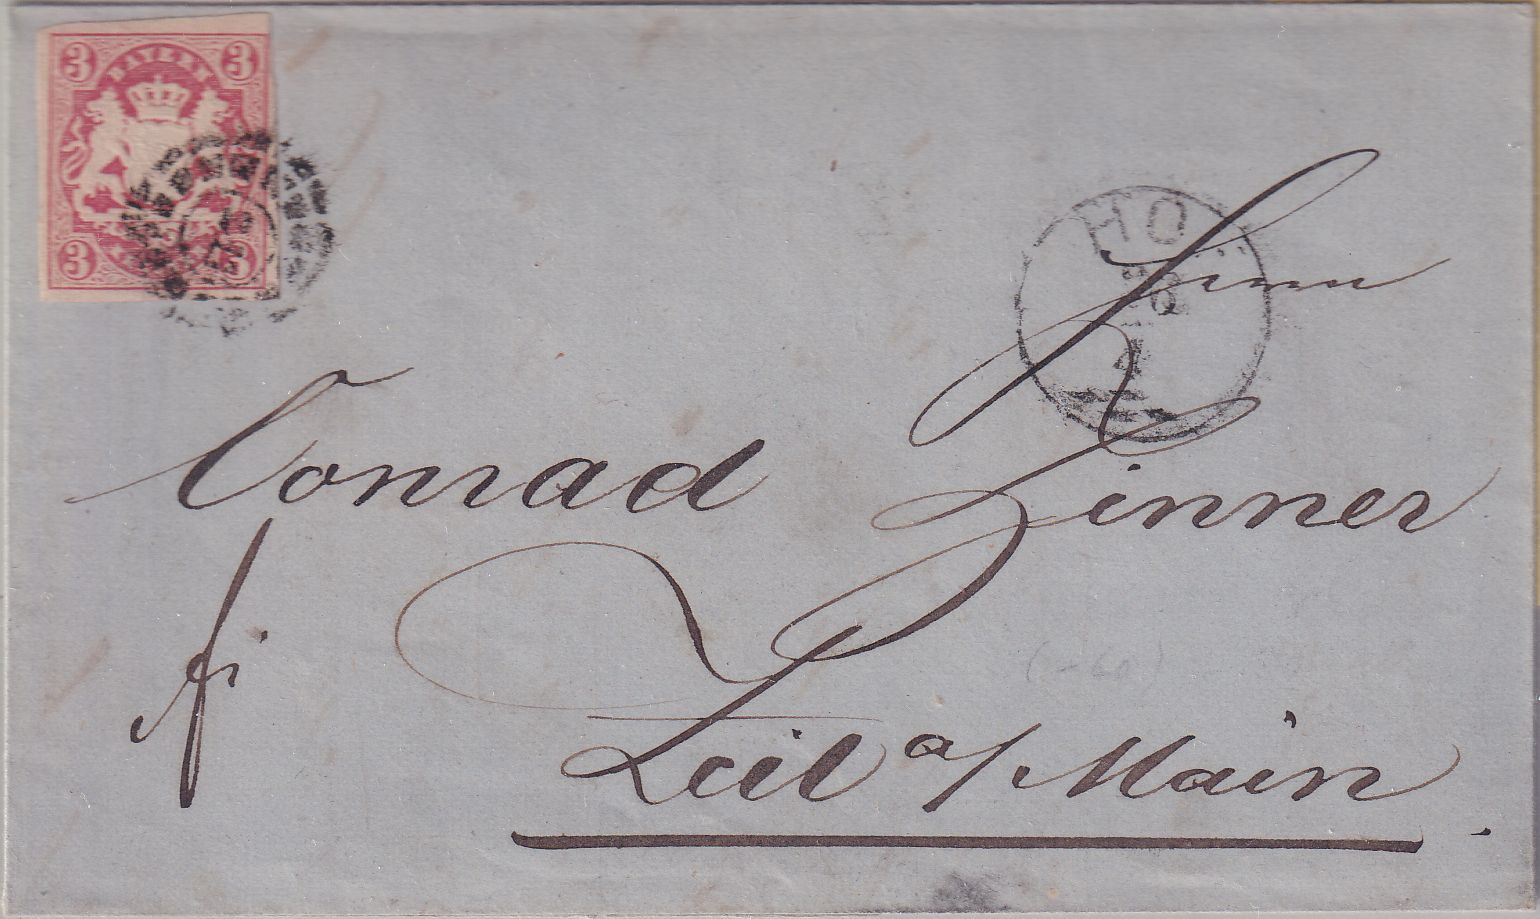 3 3
BAYERN
3 3
HO
Herrn
Conrad Zinner
fr
Zeil a/Main